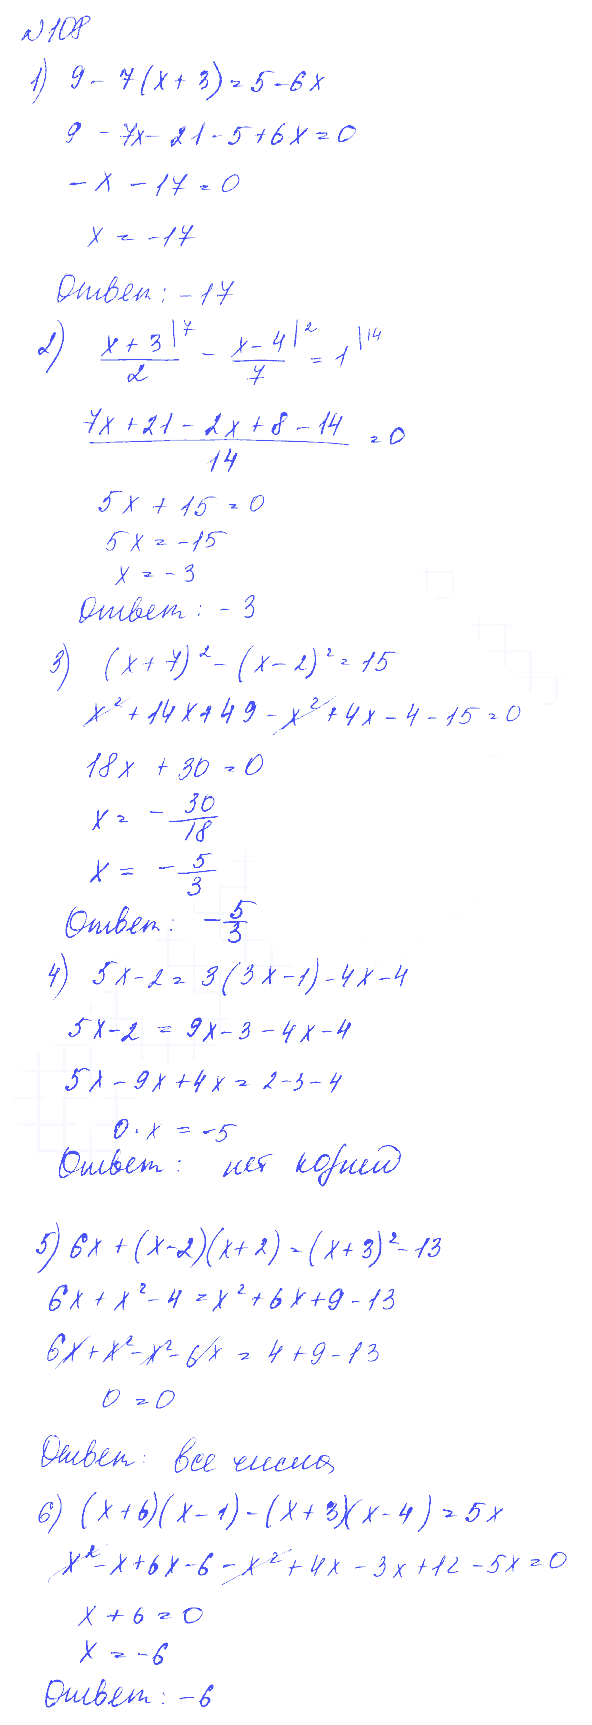 №108
1) 9 - 7(x + 3) = 5 - 6x
9 - 7x - 21 - 5 + 6x = 0
- x - 17 = 0
x = -17
Ответ: -17
2) (x + 3)/2 |7 - (x - 4)/7 |2 = 1 |14
(7x + 21 - 2x + 8 - 14)/14 = 0
5x + 15 = 0
5x = -15
x = -3
Ответ: -3
3) (x + 7)² - (x - 2)² = 15
x² + 14x + 49 - x² + 4x - 4 - 15 = 0
18x + 30 = 0
x = - 30/18
x = - 5/3
Ответ: - 5/3
4) 5x - 2 = 3(3x - 1) - 4x - 4
5x - 2 = 9x - 3 - 4x - 4
5x - 9x + 4x = 2 - 3 - 4
0 · x = -5
Ответ: нет корней
5) 6x + (x - 2)(x + 2) = (x + 3)² - 13
6x + x² - 4 = x² + 6x + 9 - 13
6x + x² - x² - 6x = 4 + 9 - 13
0 = 0
Ответ: все числа
6) (x + 6)(x - 1) - (x + 3)(x - 4) = 5x
x² - x + 6x - 6 - x² + 4x - 3x + 12 - 5x = 0
x + 6 = 0
x = -6
Ответ: -6